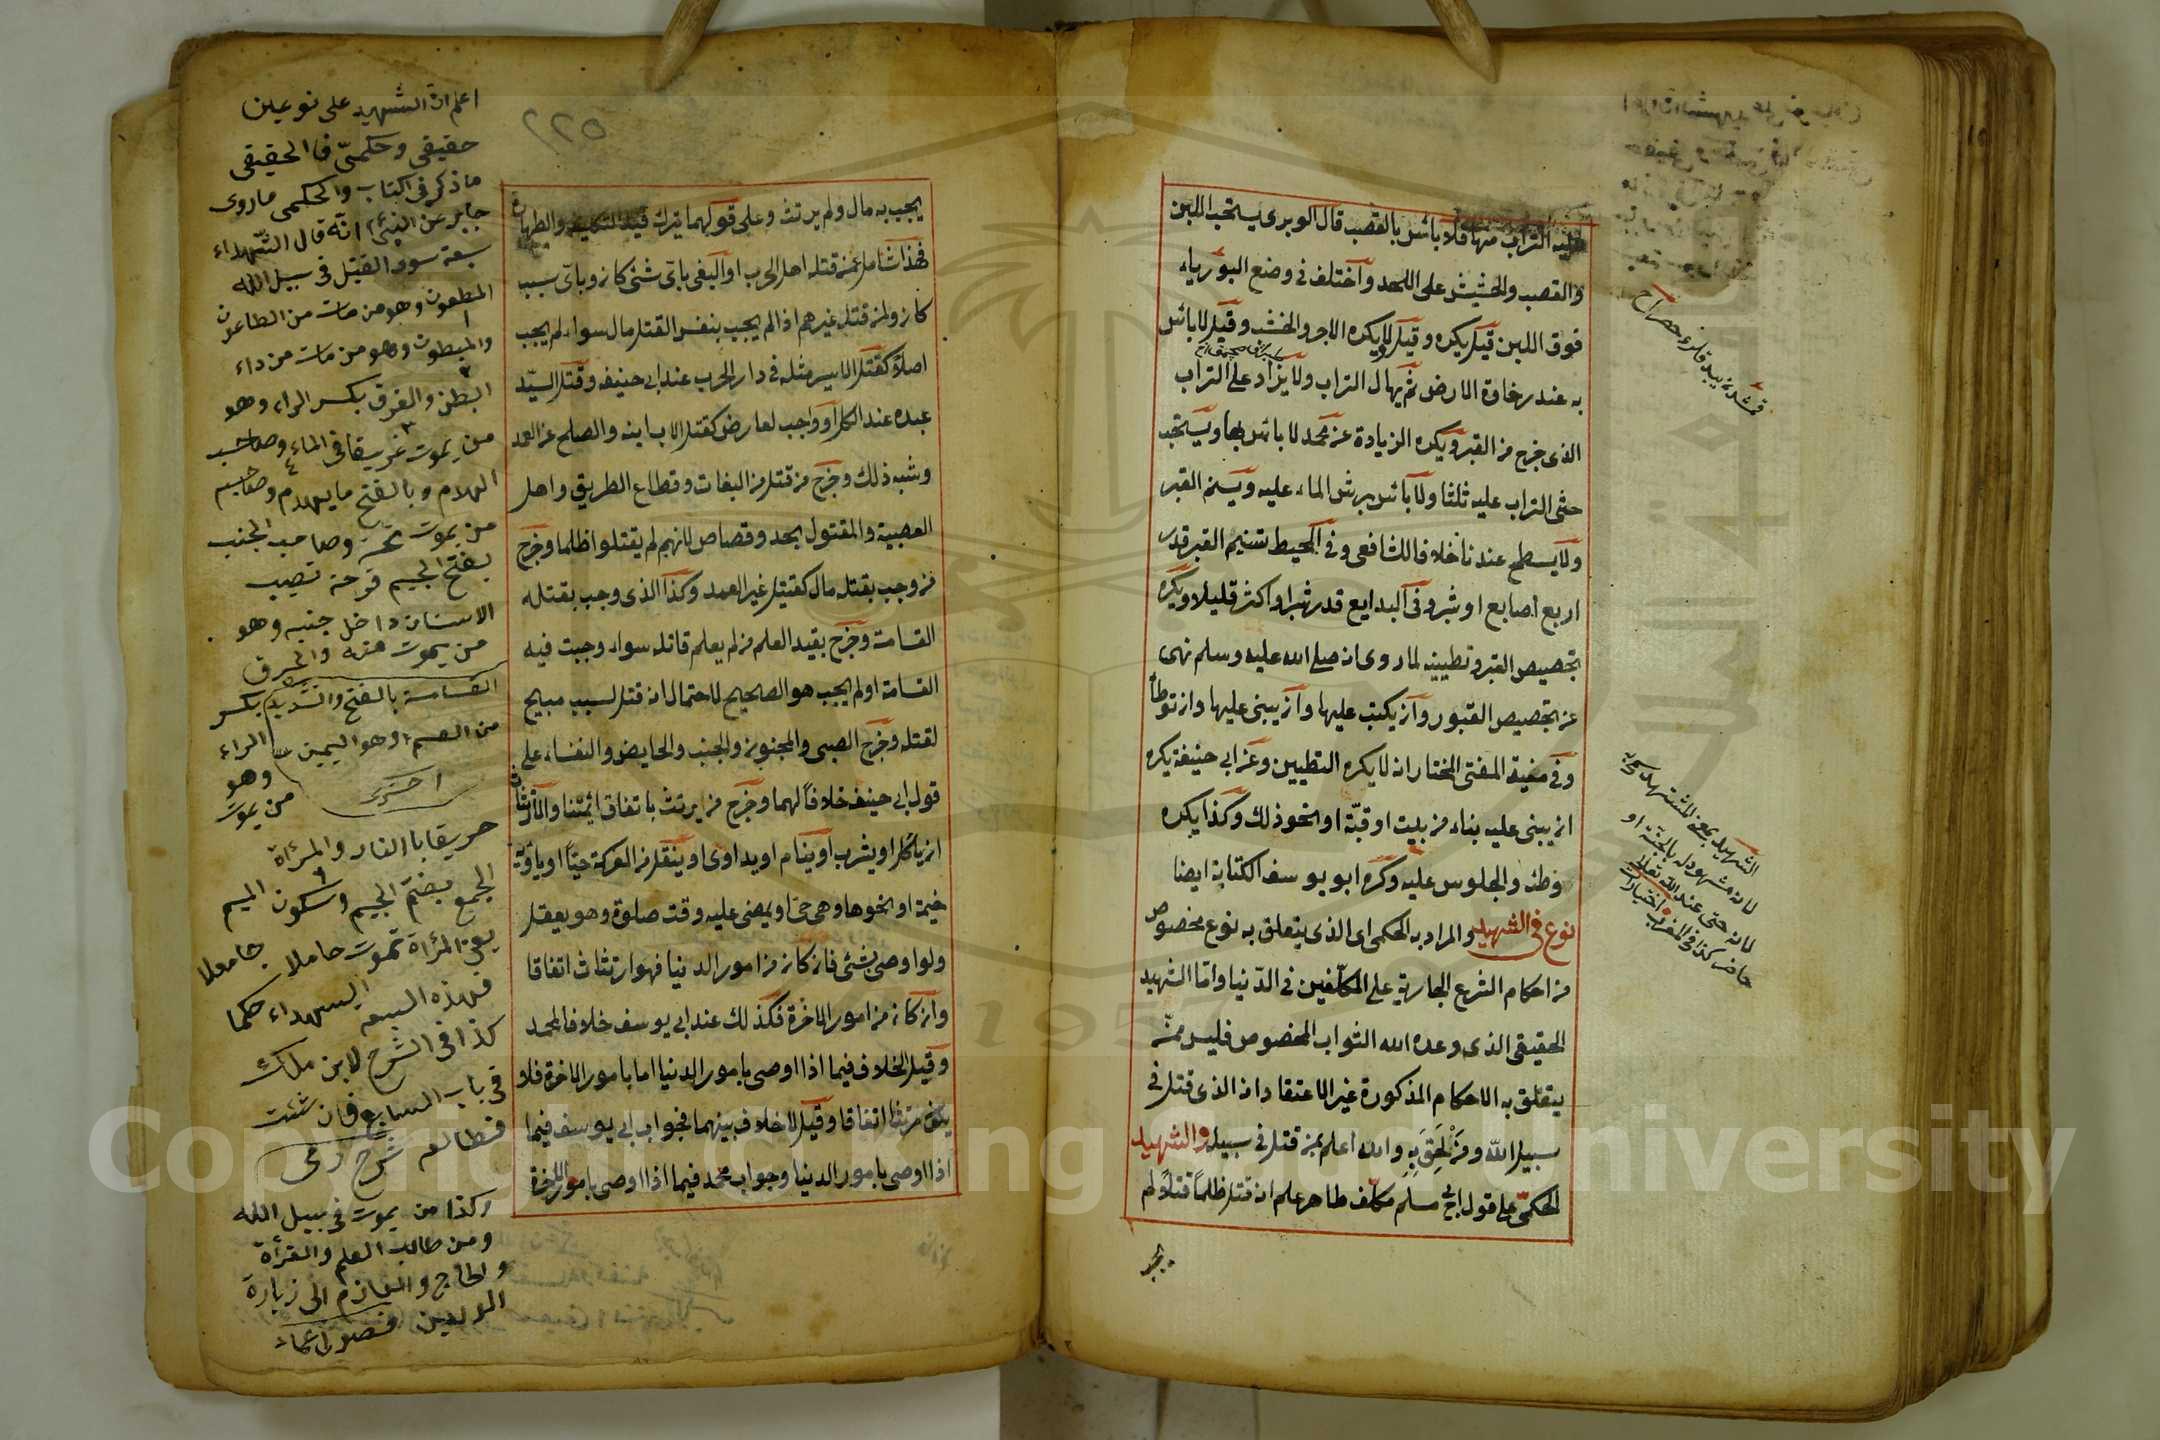 عليه التراب منها فلا باس بالقصب قال الوبرى يستحب اللبن
والقصب والحشيش على اللحد واختلف فى وضع البورياء
فوق اللبن قيل يكره وقيل لا يكره الاجر والخشب وقيل لا باس
به عند رخاوة الارض ثم يهال التراب ولا يزاد على التراب
الذى خرج من القبر ويكره الزيادة عن محمد لا باس بها ويستحب
حثى التراب عليه ثلثا ولا باس برش الماء عليه ويسنم القبر
ولا يسطح عندنا خلافا للشافعى وفى المحيط تسنيم القبر قدر
اربع اصابع او شبر وفى البدايع قدر شبر او اكثر قليلا ويكره
تجصيص القبر وتطيينه لما روى انه صلى الله عليه وسلم نهى
عن تجصيص القبور وان يكتب عليها وان يبنى عليها وان توطأ
وفى منية المفتى المختار انه لا يكره التطيين وعن ابى حنيفة يكره
ان يبنى عليه بناء من بيت او قبة او نحو ذلك وكذا يكره
وطئه والجلوس عليه وكره ابو يوسف الكتابة ايضا
نوع فى الشهيد والمراد به الحكمى اى الذى يتعلق به نوع مخصوص
من احكام الشرع الجارية على المكلفين فى الدنيا واما الشهيد
الحقيقى الذى وعده الله الثواب المخصوص فليس مما
يتعلق به الاحكام المذكورة غير الاعتقاد انه الذى قتل فى
سبيل الله ومن لحق به والله اعلم بمن قتل فى سبيله والشهيد
الحكمى على قول ابى ح مسلم مكلف طاهر علم انه قتل ظلماً قتلاً لم
يجب
الشهيد بمعنى المشهود سمى به
لانه مشهود له بالجنة او
لانه حى عند الله تعالى
حاضر كذا فى المغرب اختيارات
٥٢٢
يجب به مال ولم يرتث وعلى قولهما يترك قيد التكليف والطهارة
فهذا شامل لمن قتله اهل الحرب او البغى باى شئ كان وباى سبب
كان ولمن قتله غيرهم اذا لم يجب بنفس القتل مال سواء لم يجب
اصلاً كقتل الاسير مثله فى دار الحرب عند ابى حنيفه وقتل السيد
عبده عند الكل او وجب لعارض كقتل الاب ابنه والصلح عن العمد
وشبه ذلك وخرج من قتل من البغات وقطاع الطريق واهل
العصبية والمقتول بحد وقصاص لانهم لم يقتلوا ظلما وخرج
من وجب بقتله مال كقتيل غير العمد وكذا الذى وجب بقتله
القسامة وخرج بقيد العلم من لم يعلم قاتله سواء وجبت فيه
القسامة او لم يجب هو الصحيح لاحتمال انه قتل لسبب مبيح
لقتله وخرج الصبى والمجنون والجنب والحايض والنفساء على
قول ابى حنيفه خلافاً لهما وخرج من يرتث باتفاق ائمتنا والارتثاث
ان ياكل او يشرب او ينام او يداوى او ينقل من المعركة حيّاً او ياويه
خيمة او نحوها وهى حى او يمضى عليه وقت صلوة وهو يعقل
ولو اوصى بشئ فان كان من امور الدنيا فهو ارتثاث اتفاقا
وان كان من امور الاخرة فكذلك عند ابى يوسف خلافا لمحمد
وقيل الخلاف فيما اذا اوصى بامور الدنيا اما بامور الاخرة فلا
يكون مرتثا اتفاقا وقيل لا خلاف بينهما فجواب ابى يوسف فيما
اذا اوصى بامور الدنيا وجواب محمد فيما اذا اوصى بامور الاخرة
اعلم ان الشهيد على نوعين
حقيقى وحكمىّ فالحقيقى
ما ذكر فى الكتاب والحكمى ما روى
جابر عن النبى انه قال الشهداء
سبعة سوى القتيل فى سبيل الله
المطعون وهو من مات من الطاعون
والمبطون وهو من مات من داء
البطن والغرق بكسر الراء وهو
من يموت غريقا فى الماء وصاحب
الهدم وبالفتح ما يهدم وصاحبه
من يموت تحته وصاحب الجنب
بفتح الجيم قرحة تصيب
الانسان داخل جنبه وهو
من يموت منه والحرق
بكسر
الراء
وهو
من يموت
القسامة بالفتح والتشديد
من القسم وهو اليمين
اخترى
حريقا بالنار والمرأة
الجمع بضم الجيم وسكون الميم
يعنى المرأة تموت حاملا جامعا
فهذه السبعة الشهداء حكما
كذا فى الشرح لابن ملك
فى باب السابع فان شئت
فطالعه شرح
وكذا من يموت فى سبيل الله
ومن طالب العلم والقرأة
والحاج والعازم الى زيارة
الوالدين
Copyright © King Saud University
1957